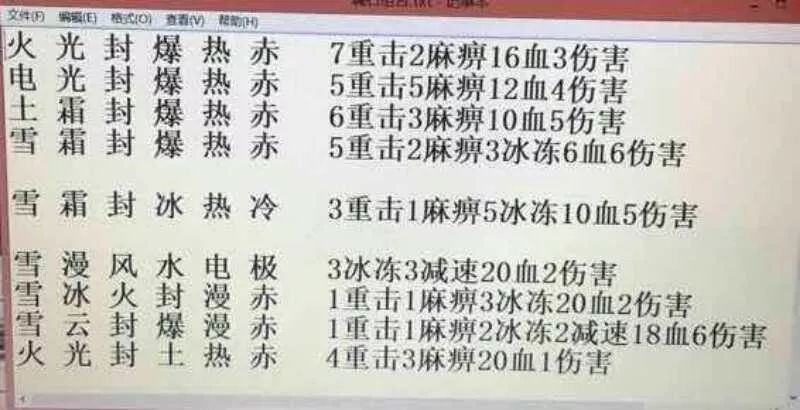 文件(F) 编辑(E) 格式(O) 查看(V) 帮助(H)
火 光 封 爆 热 赤 7重击2麻痹16血3伤害
电 光 封 爆 热 赤 5重击5麻痹12血4伤害
土 霜 封 爆 热 赤 6重击3麻痹10血5伤害
雪 霜 封 爆 热 赤 5重击2麻痹3冰冻6血6伤害
雪 霜 封 冰 热 冷 3重击1麻痹5冰冻10血5伤害
雪 漫 风 水 电 极 3冰冻3减速20血2伤害
雪 冰 火 封 漫 赤 1重击1麻痹3冰冻20血2伤害
雪 云 封 爆 漫 赤 1重击1麻痹2冰冻2减速18血6伤害
火 光 封 土 热 赤 4重击3麻痹20血1伤害